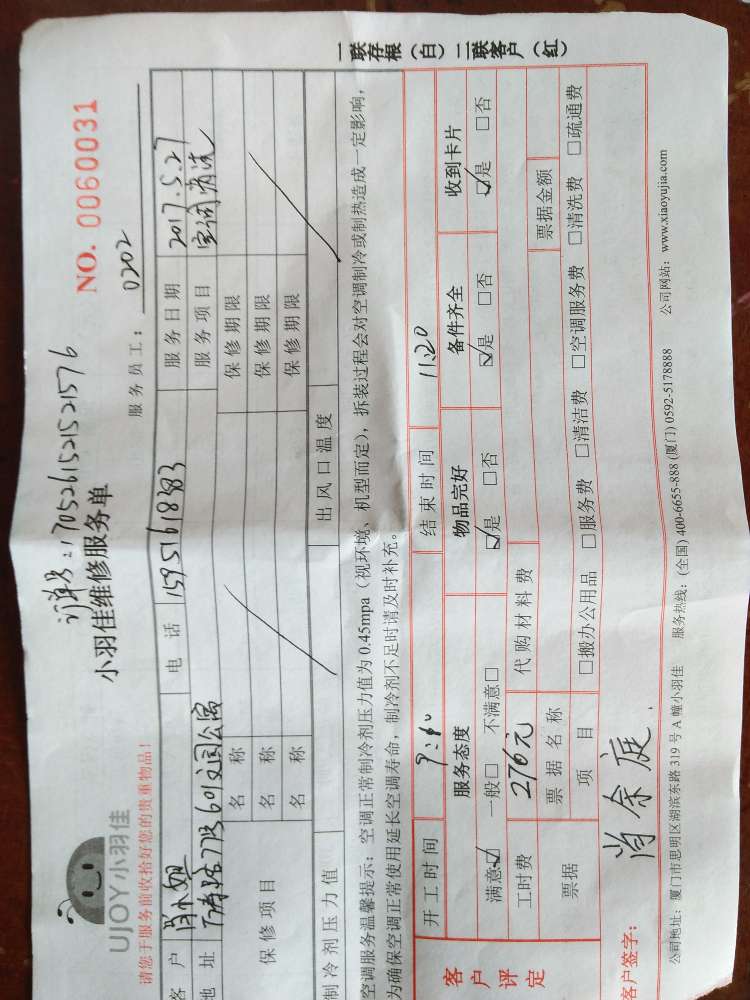 订单号:170526152152 1576
UJOY小羽佳
小羽佳维修服务单
NO. 0060031
请您于服务前收拾好您的贵重物品！
服务员工： 0202
客户 电话 15951618383 服务日期 2017.5.27
地址 601文园公寓 服务项目 空调清洗
保修项目 名称 保修期限
名称 保修期限
名称 保修期限
制冷剂压力值 出风口温度
空调服务温馨提示：空调正常制冷剂压力值为0.45mpa（视环境、机型而定），拆装过程会对空调制冷或制热造成一定影响，
为确保空调正常使用延长空调寿命，制冷剂不足时请及时补充。
客户评定 开工时间 结束时间 11:20
服务态度 物品完好 备件齐全 收到卡片
满意☑ 一般□ 不满意□ ☑是 □否 ☑是 □否 ☑是 □否
工时费 276元 代购材料费
票据 票据名称 票据金额
项目 □搬办公用品 □服务费 □清洁费 □空调服务费 □清洗费 □疏通费
客户签字： 肖余庭
公司地址：厦门市思明区湖滨东路319号A幢小羽佳 服务热线：(全国) 400-6655-888 (厦门) 0592-5178888 公司网站：www.xiaoyujia.com
一联存根（白）二联客户（红）